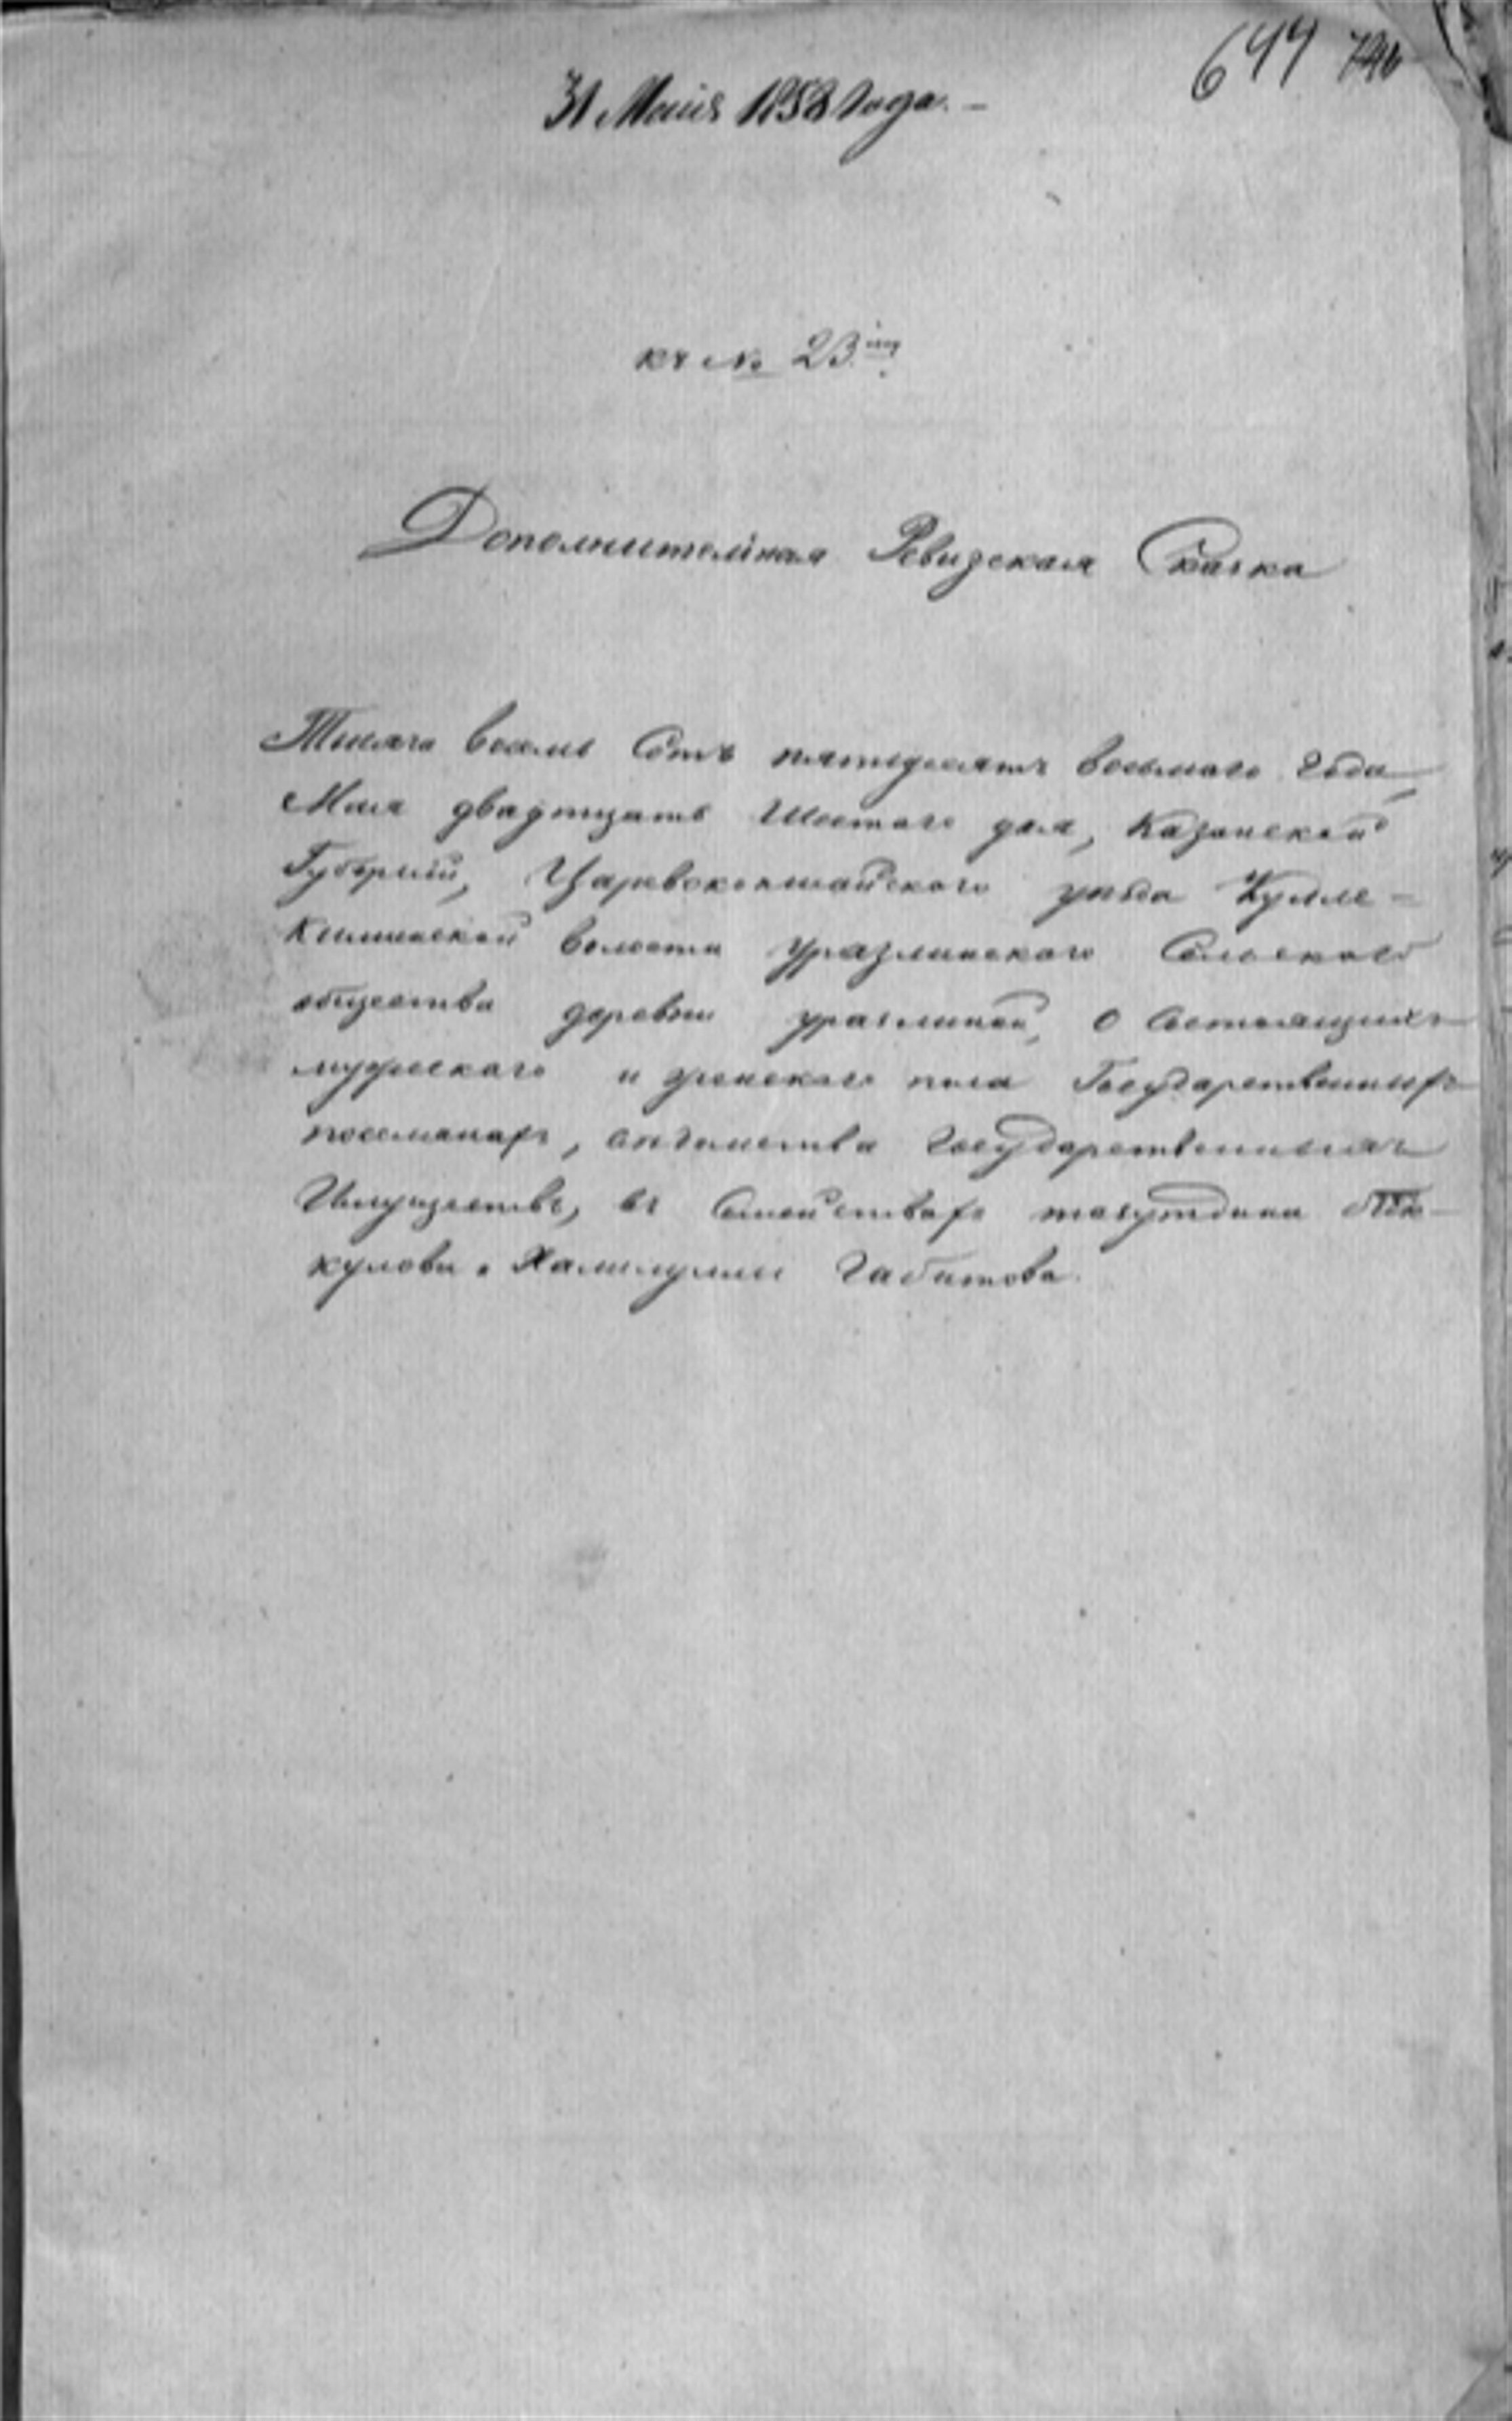 644
31 Маія 1858 года.-
къ № 23му
Дополнительная Ревизская Сказка
Тысяча восемь Сотъ пятидесятъ восьмаго года,
Мая двадтцать Шестаго дня, Казанской
Губерніи, Царевококшайского уѣзда Кулле-
Киминской волости Уразлинскаго Сельскаго
общества деревни уразлиной, о Состоящихъ
мужескаго и женскаго пола Государственныхъ
поселянахъ, вѣдомства Государственныхъ
Имуществъ, въ Семействахъ тазутдина
кулова и Халилуллы Габитова.